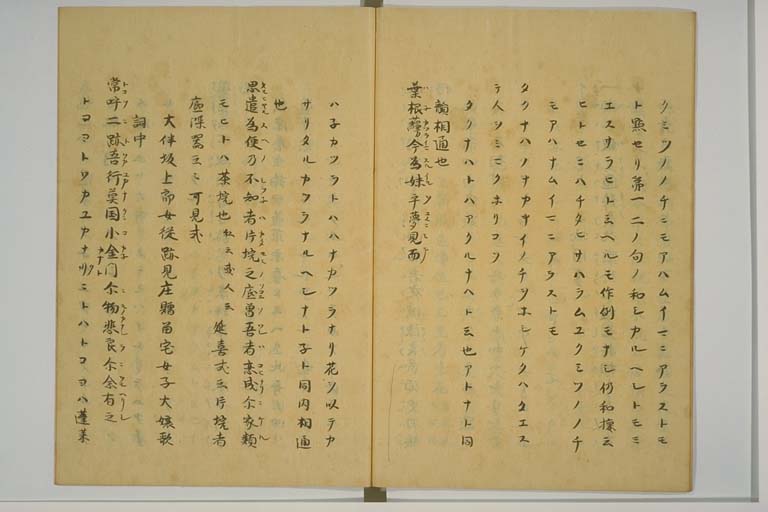 クミツノノチニモアハムイマニアラストモ
ト點セリ第一二ノ句ノ和シカルヘシトモミ
エスサラヒトミヘルモ作例モナシ仍和擽云
ヒトセニハチタヒサハラムユクミツノノチ
モアハナムイマニアラストモ
タクナハノナカキイノチヲホシケクハタエス
テ人シミマクホリコソ
タクナハトハアクルナハト云也アトナト同
韻相通也
葉根蘰今為妹乎夢見而
ハ子カツラトハハナカツラナリ花ヲ以テカ
サリタルカツラナルヘシナト子ト同内相通
也
思遣為便乃不知者片垸之底曽吾者恋成尓家類
モヒトハ茶垸也私云或人云延喜式云片垸者
底深器云々可見式
大伴坂上郎女従跡見庄贈留宅女子大嬢歌
詞中
常呼二跡吾行莫国小金門尓物悲良尓念有之
トコヨニトワカユカナクニトハトコヨハ蓬莱